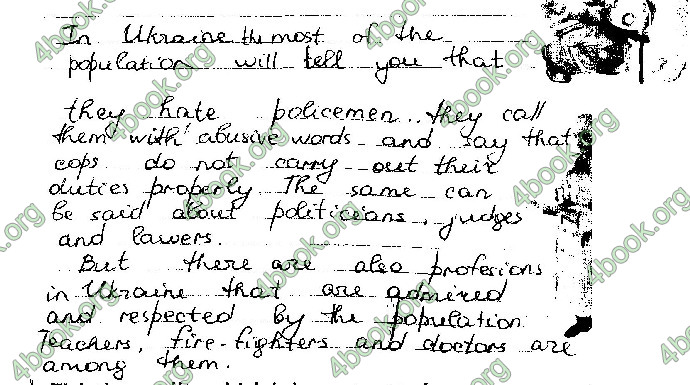 In Ukraine the most of the
population will tell you that
they hate policemen.. they call
them with abusive words and say that
cops do not carry out their
duties properly The same can
be said about politicians, judges
and lawers.
But there are also profesions
in Ukraine that are admired
and respected by the population
Teachers, fire-fighters and doctors are
among them.
4book.org